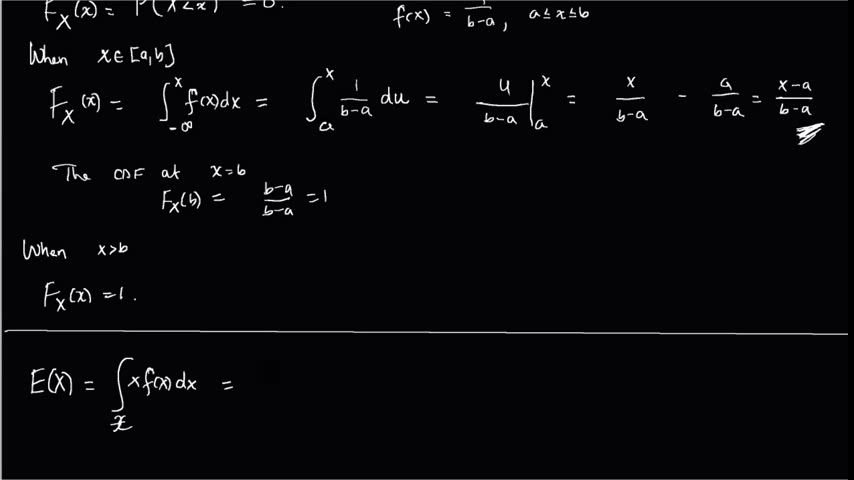 F_X(x) = P(X<x) = 0. f(x) = 1/(b-a), a ≤ x ≤ b
When x ∈ [a,b]
F_X(x) = ∫_{-∞}^{x} f(x)dx = ∫_a^x 1/(b-a) du = u/(b-a) |_a^x = x/(b-a) - a/(b-a) = (x-a)/(b-a)
The CDF at x=b
F_X(b) = (b-a)/(b-a) = 1
When x>b
F_X(x) = 1.
E(X) = ∫_x x f(x) dx =